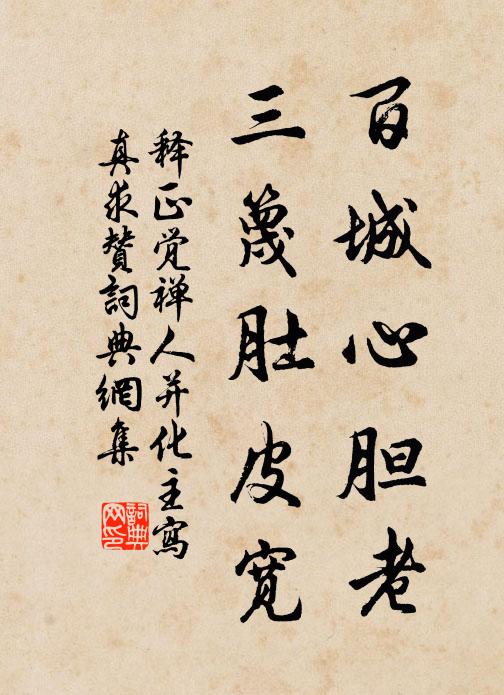 百城心胆老
三篾肚皮宽
释正觉禅人并化主写
真求赞詞典網集
詞典网印